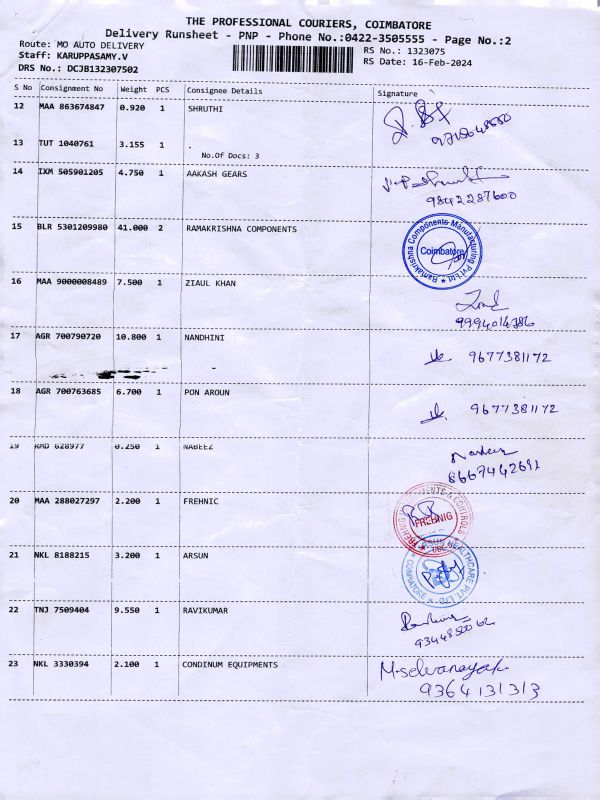 THE PROFESSIONAL COURIERS, COIMBATORE
Delivery Runsheet - PNP - Phone No.:0422-3505555 - Page No.:2
Route: MO AUTO DELIVERY RS No.: 1323075
Staff: KARUPPASAMY.V RS Date: 16-Feb-2024
DRS No.: DCJB132307502
S No Consignment No Weight PCS Consignee Details Signature
12 MAA 863674847 0.920 1 SHRUTHI
13 TUT 1040761 3.155 1 .
No.Of Docs: 3
14 IXM 505901205 4.750 1 AAKASH GEARS
9842287600
15 BLR 5301209980 41.000 2 RAMAKRISHNA COMPONENTS
Ramakrishna Components Manufacturing Pvt Ltd
Coimbatore
16 MAA 9000008489 7.500 1 ZIAUL KHAN
9994014786
17 AGR 700790720 10.800 1 NANDHINI
9677381172
18 AGR 700763685 6.700 1 PON AROUN
9677381172
19 KMD 628977 0.250 1 NABEEZ
8667442691
20 MAA 288027297 2.200 1 FREHNIC
FREHNIG
21 NKL 8188215 3.200 1 ARSUN
HEALTHCARE PVT. LTD
COIMBATORE
22 TNJ 7509404 9.550 1 RAVIKUMAR
23 NKL 3330394 2.100 1 CONDINUM EQUIPMENTS
M.selvanayak
9364131313